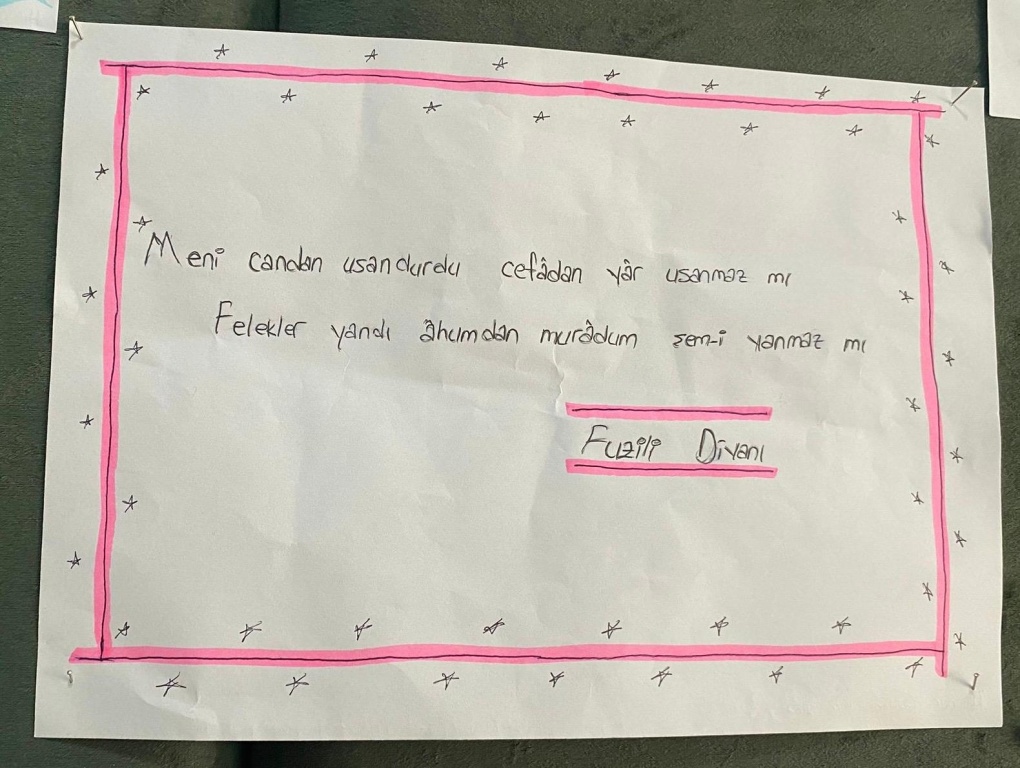 Meni candan usandurdu cefâdan yâr usanmaz mı
Felekler yandı âhumdan murâdum şem-i yanmaz mı
Fuzili Divanı